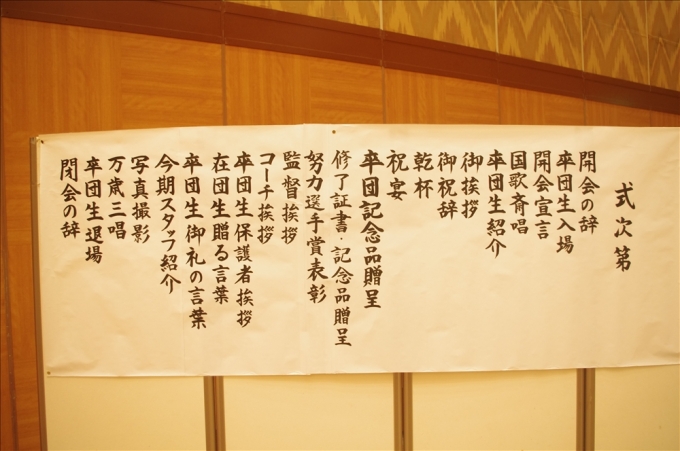 式次第
開会の辞
卒団生入場
開会宣言
国歌斉唱
卒団生紹介
御挨拶
御祝辞
乾杯
祝宴
卒団記念品贈呈
修了証書・記念品贈呈
努力選手賞表彰
監督挨拶
コーチ挨拶
卒団生保護者挨拶
在団生贈る言葉
卒団生御礼の言葉
今期スタッフ紹介
写真撮影
万歳三唱
卒団生退場
閉会の辞